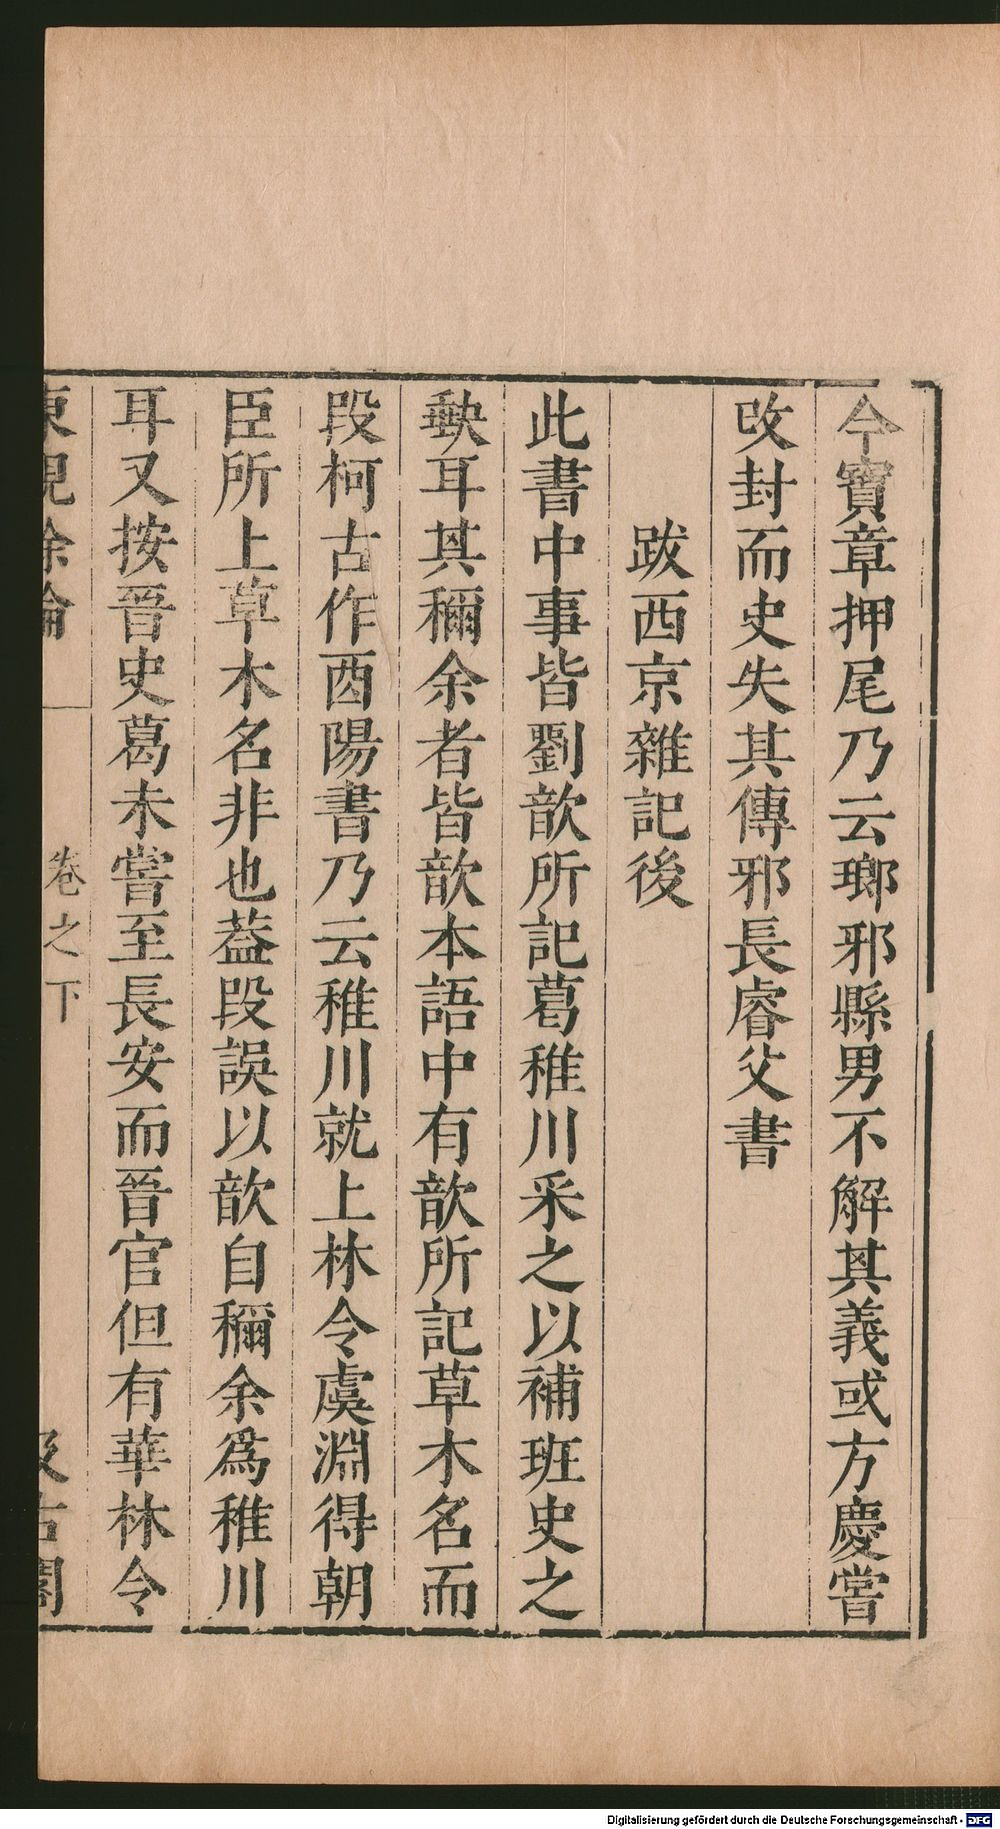 今寶章押尾乃云瑯邪縣男不解其義或方慶嘗
改封而史失其傳邪長睿父書
跋西京雜記後
此書中事皆劉歆所記葛稚川采之以補班史之
𡙇耳其稱余者皆歆本語中有歆所記草木名而
段柯古作酉陽書乃云稚川就上林令虞淵得朝
臣所上草木名非也葢段誤以歆自稱余爲稚川
耳又按晉史葛未嘗至長安而晉官但有華林令
東觀餘論
卷之下
汲古閣
Digitalisierung gefördert durch die Deutsche Forschungsgemeinschaft - DFG